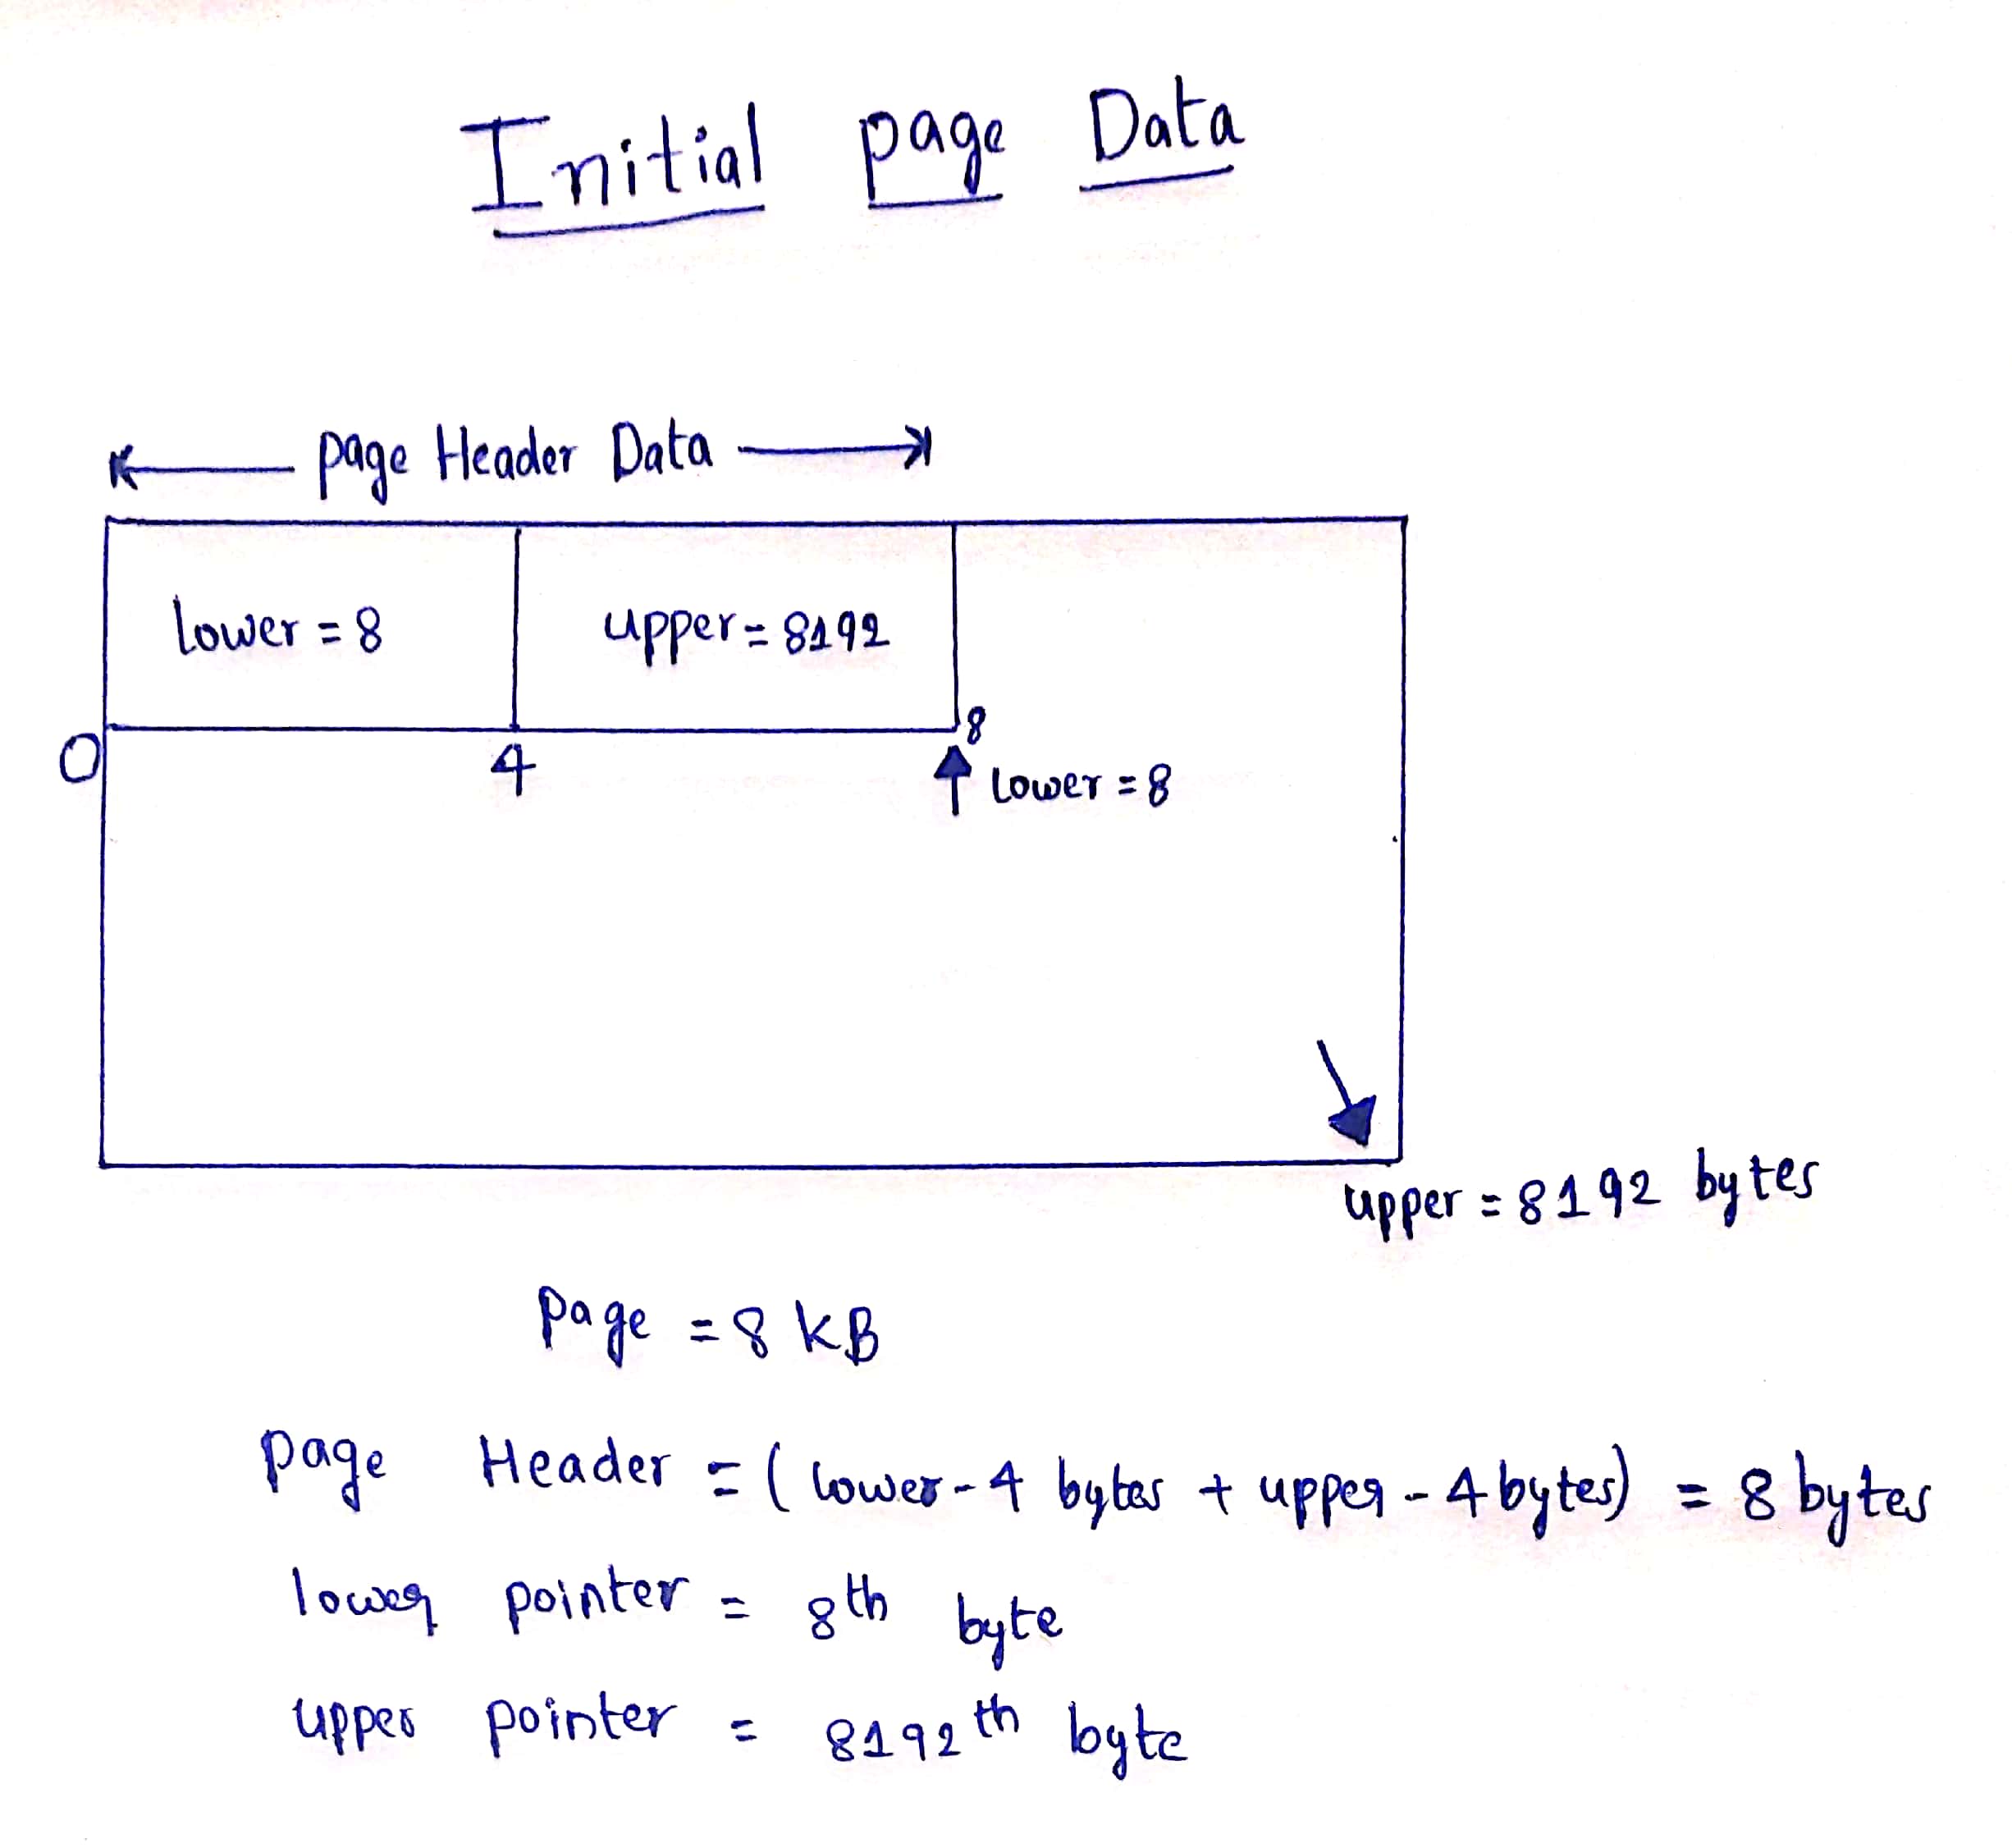 Initial page Data
page Header Data
lower = 8
upper = 8192
8
0
4
lower = 8
upper = 8192 bytes
page = 8 KB
page Header = ( lower - 4 bytes + upper - 4 bytes) = 8 bytes
lower pointer = 8th byte
upper pointer = 8192th byte